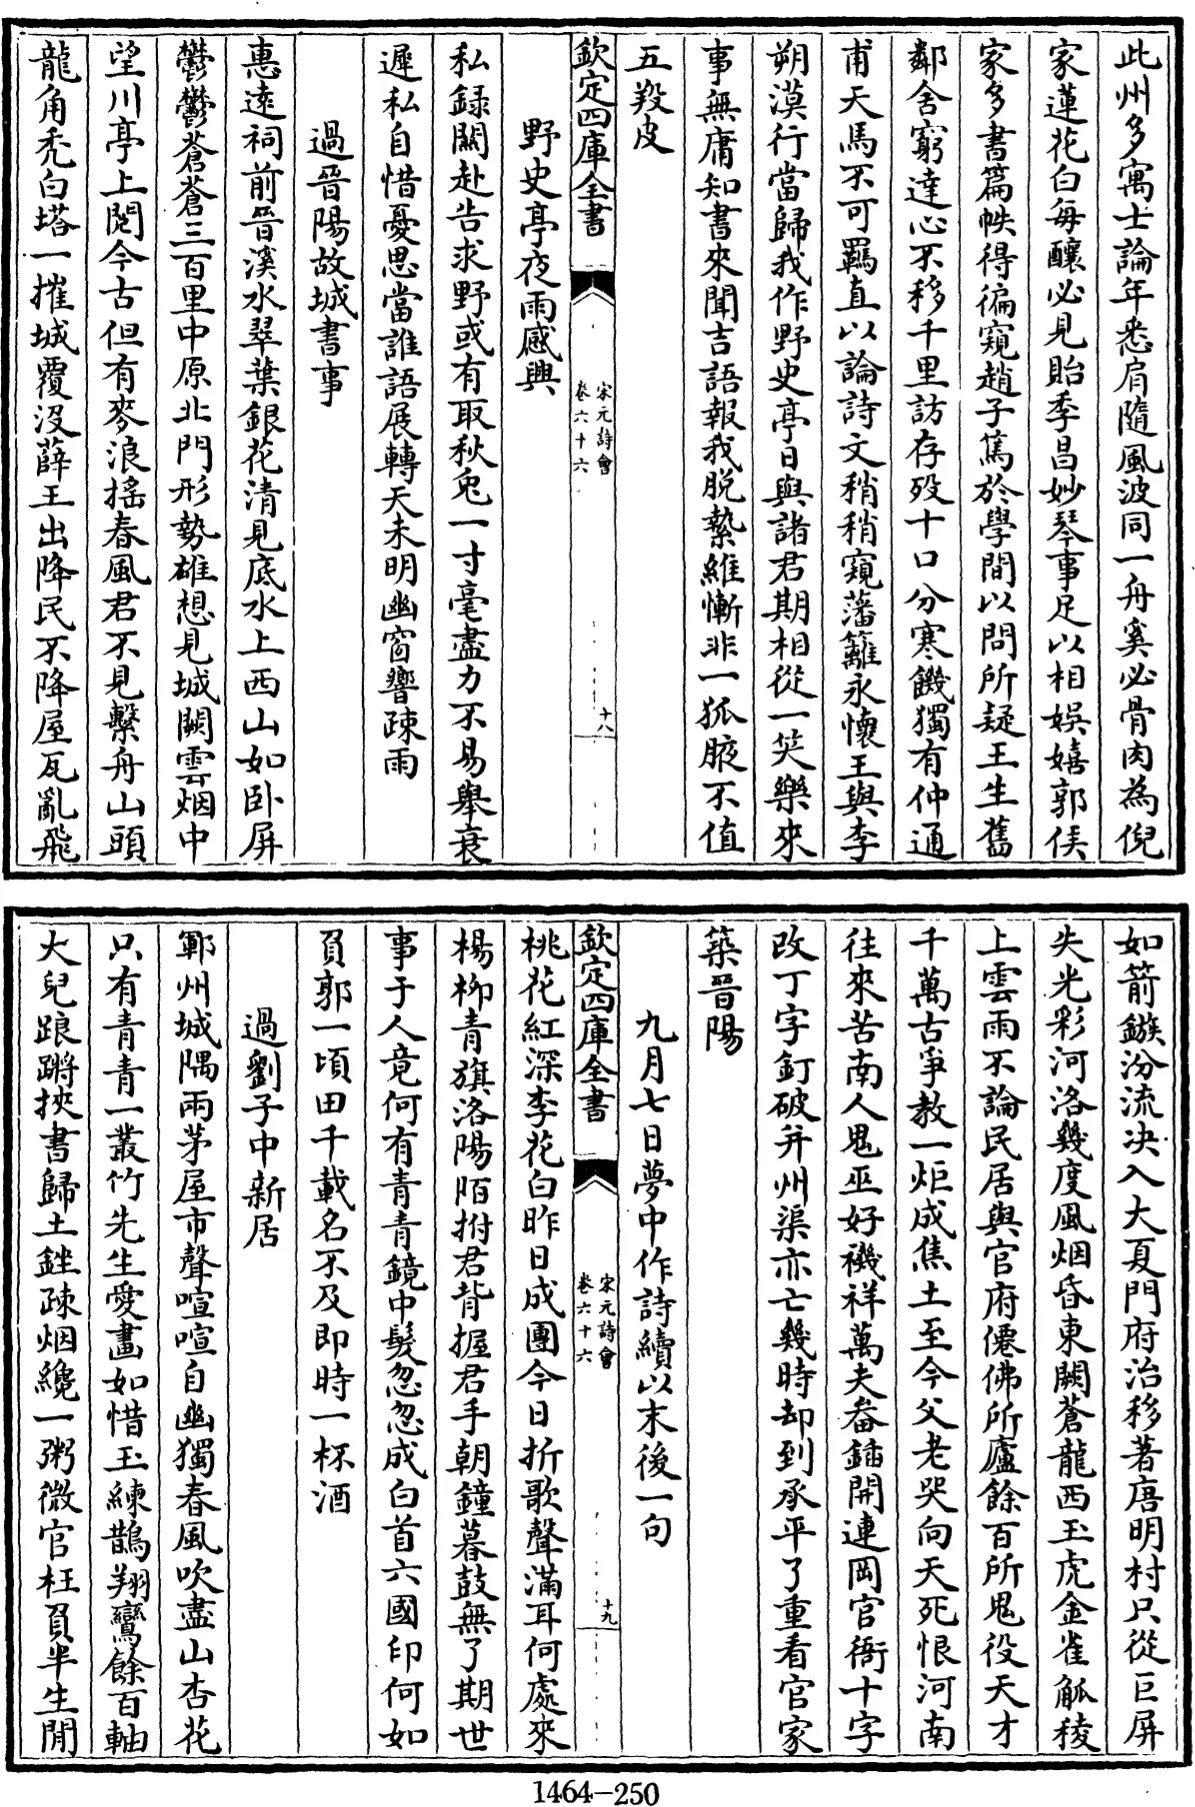 此州多寓士論年悉肩隨風波同一舟奚必骨肉為倪
家蓮花白每釀必見貽季昌妙琴事足以相娛嬉郭侯
家多書篇帙得徧窺趙子篤於學間以問所疑王生舊
鄰舍窮達心不移千里訪存歿十口分寒饑獨有仲通
甫天馬不可羈直以論詩文稍稍窺藩籬永懷王與李
朔漠行當歸我作野史亭日與諸君期相從一笑樂來
事無庸知書來聞吉語報我脫縶維慚非一狐腋不值
五羖皮
欽定四庫全書
宋元詩會
卷六十六
十八
野史亭夜雨感興
私錄關赴告求野或有取秋兔一寸毫盡力不易舉衰
遲私自惜憂思當誰語展轉天未明幽窗響疎雨
過晉陽故城書事
惠遠祠前晉溪水翠葉銀花清見底水上西山如卧屏
鬱鬱蒼蒼三百里中原北門形勢雄想見城闕雲烟中
望川亭上閱今古但有麥浪搖春風君不見繫舟山頭
龍角禿白塔一摧城覆沒薛王出降民不降屋瓦亂飛
如箭鏃汾流决入大夏門府治移著唐明村只從巨屏
失光彩河洛幾度風烟昏東闕蒼龍西玉虎金雀觚稜
上雲雨不論民居與官府僊佛所廬餘百所鬼役天才
千萬古爭教一炬成焦土至今父老哭向天死恨河南
往來苦南人鬼巫好禨祥萬夫畚鍤開連岡官衙十字
改丁字釘破并州渠亦亡幾時却到承平了重看官家
築晉陽
九月七日夢中作詩續以末後一句
欽定四庫全書
宋元詩會
卷六十六
十九
桃花紅深李花白昨日成團今日折歌聲滿耳何處來
楊柳青旗洛陽陌拊君背握君手朝鐘暮鼓無了期世
事于人竟何有青青鏡中髮忽忽成白首六國印何如
負郭一頃田千載名不及即時一杯酒
過劉子中新居
鄆州城隅兩茅屋市聲喧喧自幽獨春風吹盡山杏花
只有青青一叢竹先生愛畫如惜玉練鵲翔鸞餘百軸
大兒踉蹡挾書歸土銼疎烟纔一粥微官枉負半生閒
1464-250